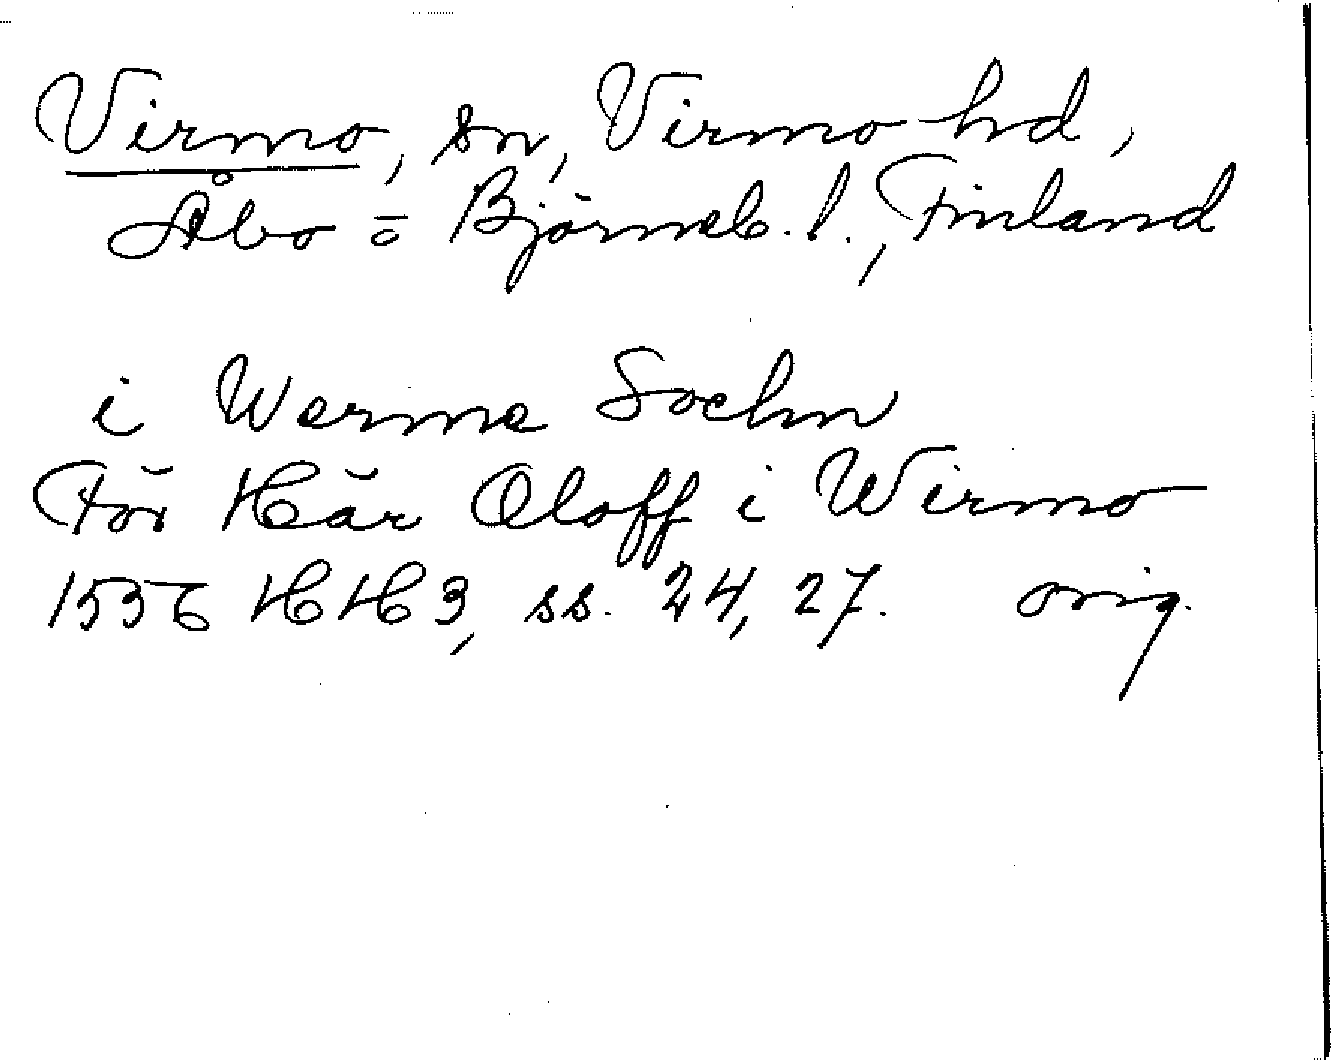 Virmo, sn, Virmo hd,
Åbo o Björneb. l., Finland
i Werme Sochn
För Här Oloff i Wirmo
1556 HH 3, ss. 24, 27. orig.